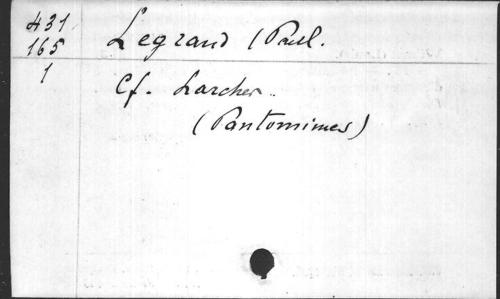 431
165
1
Legrand (Paul.
Cf. Larcher.
(Pantomimes)